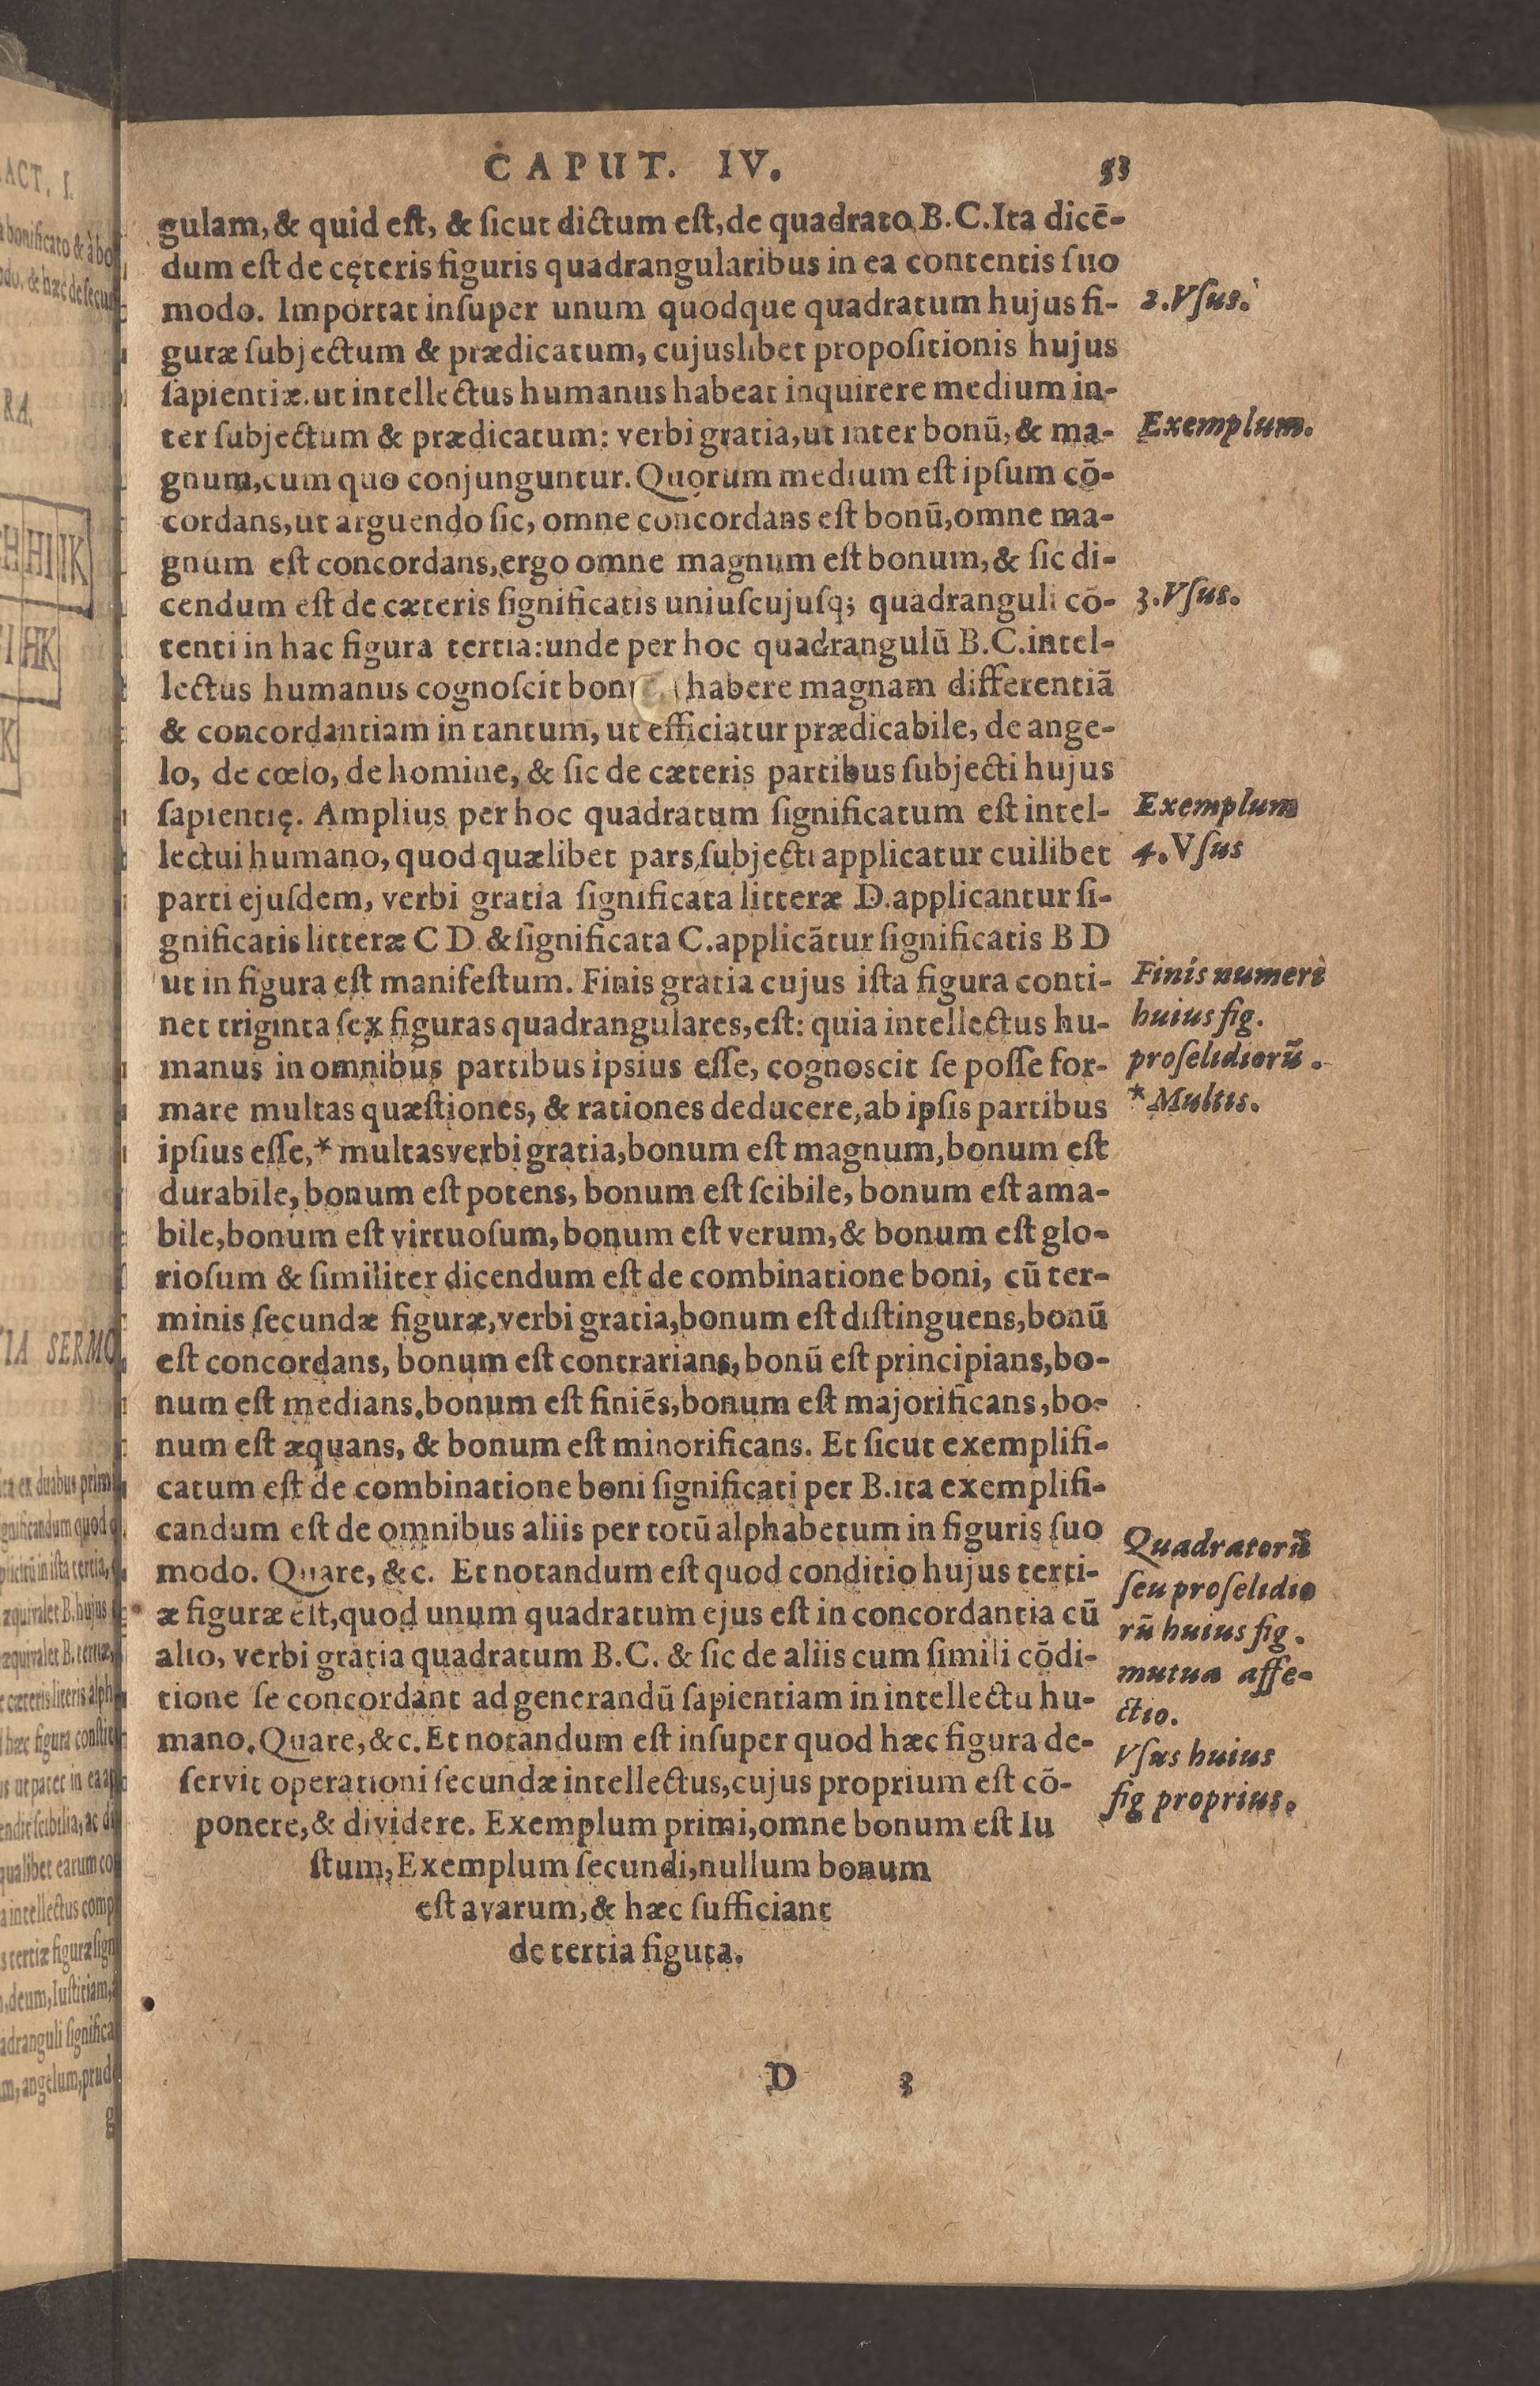 CAPUT. IV. 53
gulam, & quid eſt, & ſicut dictum eſt, de quadrato B.C. Ita dicē-
dum eſt de cęteris figuris quadrangularibus in ea contentis ſuo
modo. Importat inſuper unum quodque quadratum hujus fi-
guræ ſubjectum & prædicatum, cujuslibet propoſitionis hujus
ſapientiæ. ut intellectus humanus habeat inquirere medium in-
ter ſubjectum & prædicatum: verbi gratia, ut inter bonū, & ma-
gnum, cum quo conjunguntur. Quorum medium eſt ipſum cō-
cordans, ut arguendo ſic, omne concordans eſt bonū, omne ma-
gnum eſt concordans, ergo omne magnum eſt bonum, & ſic di-
cendum eſt de cæteris ſignificatis uniuſcujuſq; quadranguli cō-
tenti in hac figura tertia: unde per hoc quadrangulū B.C. intel-
lectus humanus cognoſcit habere magnam differentiā
& concordantiam in tantum, ut efficiatur prædicabile, de ange-
lo, de cœlo, de homine, & ſic de cæteris partibus ſubjecti hujus
ſapientię. Amplius per hoc quadratum ſignificatum eſt intel-
lectui humano, quod quælibet pars ſubjecti applicatur cuilibet
parti ejuſdem, verbi gratia ſignificata litteræ D. applicantur ſi-
gnificatis litteræ C D. & ſignificata C. applicātur ſignificatis B D
ut in figura eſt manifeſtum. Finis gratia cujus iſta figura conti-
net triginta ſex figuras quadrangulares, eſt: quia intellectus hu-
manus in omnibus partibus ipsius eſſe, cognoscit ſe poſſe for-
mare multas quæſtiones, & rationes deducere, ab ipſis partibus
ipſius eſſe, * multas verbi gratia, bonum eſt magnum, bonum eſt
durabile, bonum eſt potens, bonum eſt ſcibile, bonum eſt ama-
bile, bonum eſt virtuoſum, bonum eſt verum, & bonum eſt glo-
rioſum & ſimiliter dicendum eſt de combinatione boni, cū ter-
minis ſecundæ figuræ, verbi gratia, bonum eſt diſtinguens, bonū
eſt concordans, bonum eſt contrarians, bonū eſt principians, bo-
num eſt medians, bonum eſt finiēs, bonum eſt majorificans, bo-
num eſt æquans, & bonum eſt minorificans. Et ſicut exemplifi-
catum eſt de combinatione boni ſignificati per B. ita exemplifi-
candum eſt de omnibus aliis per totū alphabetum in figuris ſuo
modo. Quare, &c. Et notandum eſt quod conditio hujus terti-
æ figuræ eſt, quod unum quadratum ejus eſt in concordantia cū
alio, verbi gratia quadratum B.C. & ſic de aliis cum ſimili cōdi-
tione ſe concordant ad generandū ſapientiam in intellectu hu-
mano. Quare, &c. Et notandum eſt inſuper quod hæc figura de-
ſervit operationi ſecundæ intellectus, cujus proprium eſt cō-
ponere, & dividere. Exemplum primi, omne bonum eſt Iu
ſtum, Exemplum ſecundi, nullum bonum
eſt avarum, & hæc ſufficiant
de tertia figura.
D 3
2. Vſus.
Exemplum.
3. Vſus.
Exemplum
4. Vſus
Finis numeri
huius fig.
proſelidiorū.
* Multis.
Quadratorū
ſeu proſelidio
rū huius fig.
mutua affe-
ctio.
Vſus huius
fig proprius.
ACT. I.
RA.
HI IK
HK
K
TIA SERMO